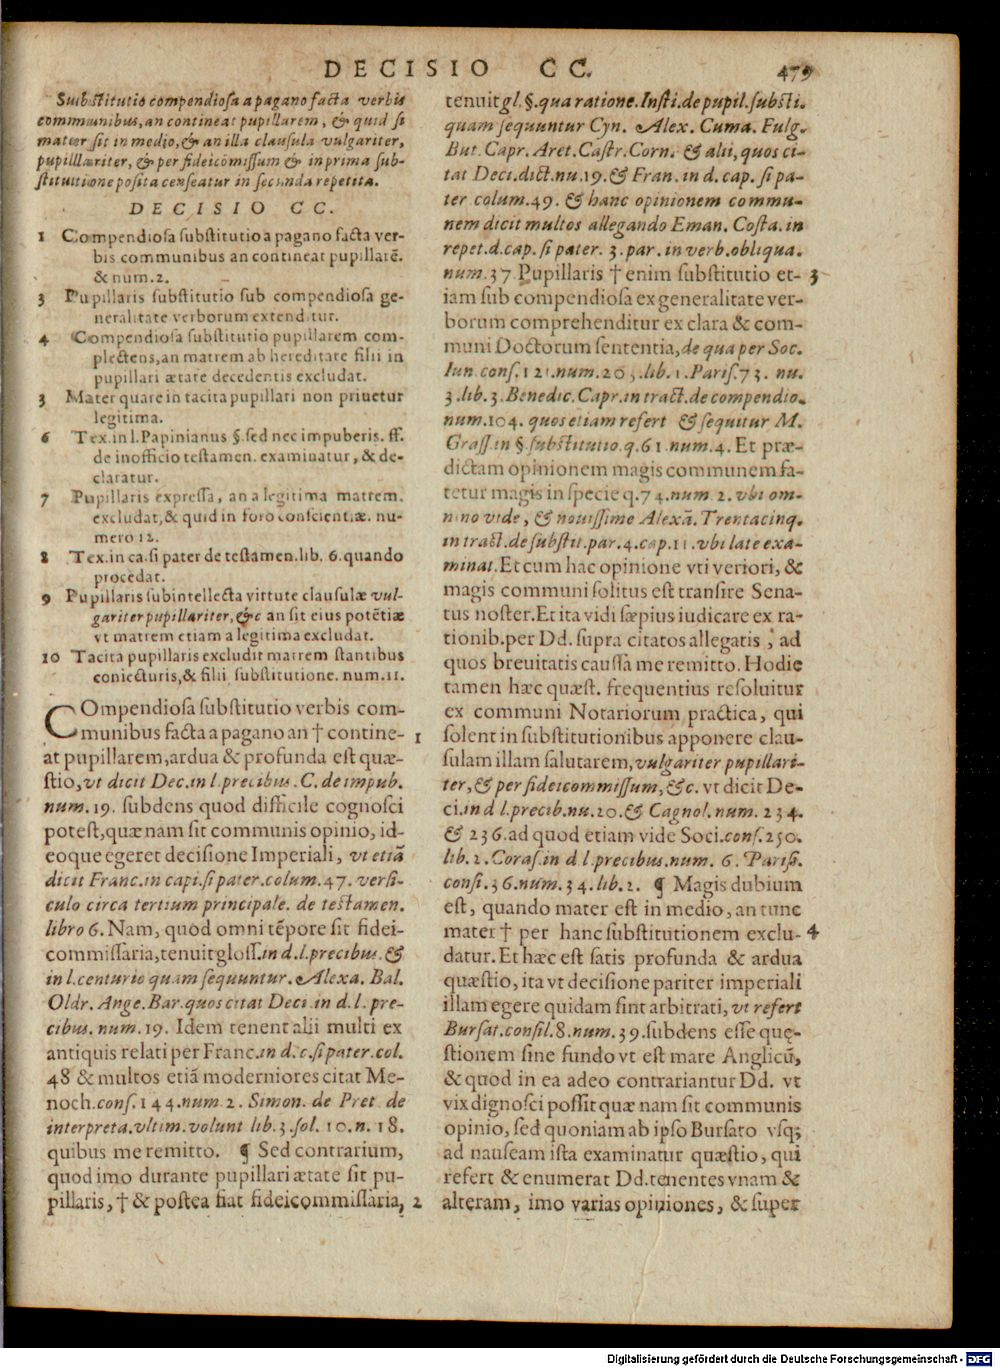 DECISIO CC. 479
Substitutio compendiosa a pagano facta verbis
communibus, an contineat pupillarem, & quid si
mater sit in medio, & an illa clausula vulgariter,
pupilllariter, & per fideicõmissum & in prima sub-
stituitione posita censeatur in secunda repetita.
DECISIO CC.
1 Compendiosa substitutio a pagano facta ver-
bis communibus an contineat pupillarẽ.
& num. 2.
3 Pupillaris substitutio sub compendiosa ge-
neralitate verborum extenditur.
4 Compendiosa substitutio pupillarem com-
plectens, an matrem ab hereditate filii in
pupillari ætate decedentis excludat.
3 Mater quare in tacita pupillari non priuetur
legitima.
6 Tex. in l. Papinianus §. sed nec impuberis. ff.
de inofficio testamen. examinatur, & de-
claratur.
7 Pupillaris expressa, an a legitima matrem.
excludat, & quid in foro conscientiæ. nu-
mero 12.
8 Tex. in ca. si pater de testamen. lib. 6. quando
procedat.
9 Pupillaris subintellecta virtute clausulæ vul-
gariter pupillariter, &c an sit eius potẽtiæ
vt matrem etiam a legitima excludat.
10 Tacita pupillaris excludit matrem stantibus
coniecturis, & filii substitutione. num. 11.
COmpendiosa substitutio verbis com-
munibus facta a pagano an † contine- 1
at pupillarem, ardua & profunda est quæ-
stio, vt dicit Dec. in l. precibus. C. de impub.
num. 19. subdens quod difficile cognosci
potest, quæ nam sit communis opinio, id-
eoque egeret decisione Imperiali, vt etiã
dicit Franc. in capi. si pater. colum. 47. versi-
culo circa tertium principale. de testamen.
libro 6. Nam, quod omni tẽpore sit fidei-
commissaria, tenuit gloss. in d. l. precibus. &
in l. centurio quam sequuntur. Alexa. Bal.
Oldr. Ange. Bar. quos citat Deci. in d. l. pre-
cibus. num. 19. Idem tenent alii multi ex
antiquis relati per Franc. in d. c. si pater. col.
48 & multos etiã moderniores citat Me-
noch. cons. 144. num 2. Simon. de Pret de
interpreta. vltim. volunt lib. 3. sol. 10. n. 18.
quibus me remitto. ¶ Sed contrarium,
quod imo durante pupillari ætate sit pu-
pillaris, † & postea fiat fideicommissaria, 2
tenuit gl. §. qua ratione. Insti. de pupil. substi.
quam sequuntur Cyn. Alex. Cuma. Fulg.
But. Capr. Aret. Castr. Corn. & alii, quos ci-
tat Deci. dict. nu. 19. & Fran. in d. cap. si pa-
ter colum. 49. & hanc opinionem commu-
nem dicit multos allegando Eman. Costa. in
repet. d. cap. si pater. 3. par. in verb. obliqua.
num. 37. Pupillaris † enim substitutio et- 3
iam sub compendiosa ex generalitate ver-
borum comprehenditur ex clara & com-
muni Doctorum sententia, de qua per Soc.
Iun cons. 121. num. 20. lib. 1. Paris. 73. nu.
3. lib. 3. Benedic. Capr. in tract. de compendio.
num. 104. quos etiam refert & sequitur M.
Grass. in §. substitutio. q. 61. num. 4. Et præ-
dictam opinionem magis communem fa-
tetur magis in specie q. 74. num. 2. vbi om-
nino vide, & nouissime Alexã. Trentacinq.
in tract. de substit. par. 4. cap. 11. vbi late exa-
minat. Et cum hac opinione vti veriori, &
magis communi solitus est transire Sena-
tus noster. Et ita vidi sæpius iudicare ex ra-
tionib. per Dd. supra citatos allegatis, ad
quos breuitatis caussa me remitto. Hodie
tamen hæc quæst. frequentius resoluitur
ex communi Notariorum practica, qui
solent in substitutionibus apponere clau-
sulam illam salutarem, vulgariter pupillari-
ter, & per fideicommissum, &c. vt dicit De-
ci. in d l. precib. nu. 20. & Cagnol. num. 234.
& 236. ad quod etiam vide Soci. cons. 250.
lib. 2. Coras. in d l. precibus. num. 6. Parisi.
consi. 36. num. 34. lib. 2. ¶ Magis dubium
est, quando mater est in medio, an tunc
mater † per hanc substitutionem exclu- 4
datur. Et hæc est satis profunda & ardua
quæstio, ita vt decisione pariter imperiali
illam egere quidam sint arbitrati, vt refert
Bursat. consil. 8. num. 39. subdens esse quę-
stionem sine fundo vt est mare Anglicũ,
& quod in ea adeo contrariantur Dd. vt
vix dignosci possit quæ nam sit communis
opinio, sed quoniam ab ipso Bursato vsq;
ad nauseam ista examinatur quæstio, qui
refert & enumerat Dd. tenentes vnam &
alteram, imo varias opiniones, & super
Digitalisierung gefördert durch die Deutsche Forschungsgemeinschaft - DFG